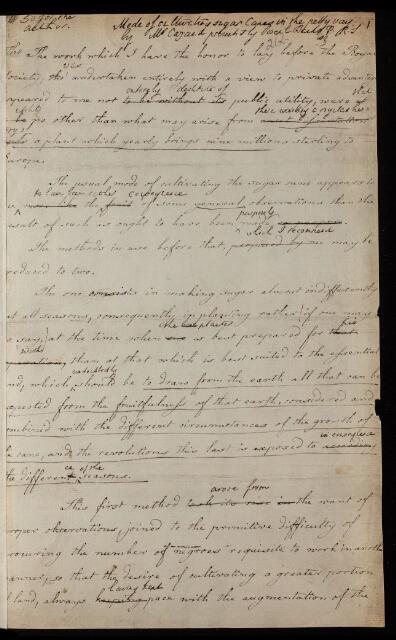 50 copies for the
author.
Mode of cultivating sugar Canes in the
by Mr Cazaud
The work which I have the honor to lay before the Royal
Society, was undertaken entirely with a view to private advantage
appeared to me not entirely destitute of public utility, were
no other than what may arise from
a plant which yearly brings nine millions sterling to
Europe.
The usual mode of cultivating the sugar cane appears to
to have been the consequence
the fruit of some general observations than the
result of such as ought to have been purposely made
which I reconsidered
The methods in use before that, proposed by me may be
reduced to two.
The one consists in making sugar almost indifferently
at all seasons, consequently in planting rather if one may
so say, at the time when the planter is best prepared for
than at that which is best suited to the essential
end, which undoubtedly should be to draw from the earth all that can be
expected from the fruitfulness of that earth, considered and
combined with the different circumstances of the growth of
the cane, and the revolutions this last is exposed to in consequence
of the different seasons.
This first method arose from the want of
proper observations, joined to the primitive difficulty of
procuring the number of negroes requisite to work in another
manner, so that the desire of cultivating a greater portion
of land, always keeping pace with the augmentation of the